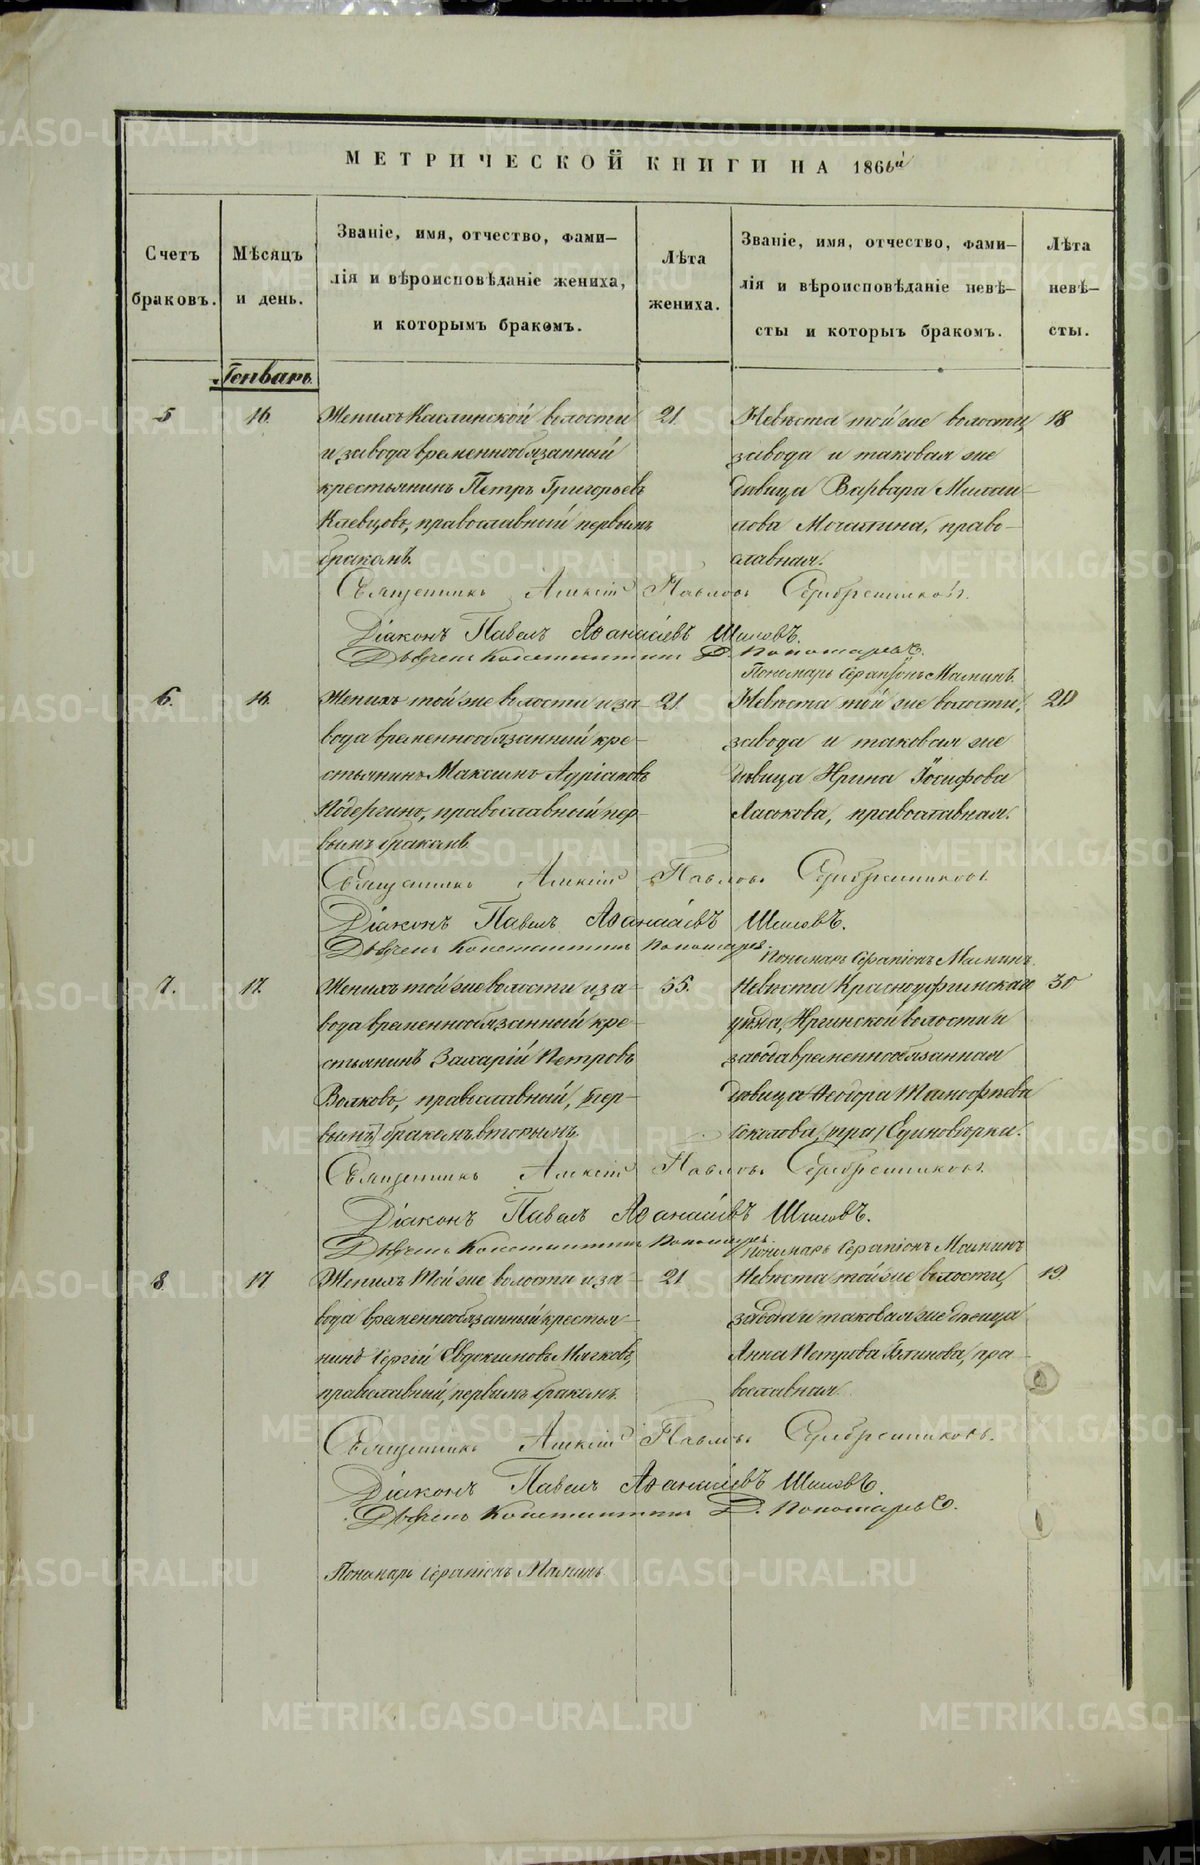 МЕТРИЧЕСКОЙ КНИГИ НА 1866й
Счетъ браковъ.
Мѣсяцъ и день.
Званіе, имя, отчество, фами-
лія и вѣроисповѣданіе жениха,
и которымъ бракомъ.
Лѣта жениха.
Званіе, имя, отчество, фами-
лія и вѣроисповѣданіе невѣ-
сты и которыъ бракомъ.
Лѣта невѣ-
сты.
Генварь
5 16.
Женихъ Каслинской волости
и завода временнообязанный
крестьянинъ Петръ Григорьевъ
Клевцовъ, православный первымъ
бракомъ.
21.
Невѣста той же волости,
завода и таковая же
дѣвица Варвара Михаи-
лова Мочалина, право-
славная.
18
Священникъ Алексій Павловъ Серебренниковъ.
Діаконъ Павелъ Аѳанасіевъ Шиловъ.
Дьячекъ Константинъ Д. Пономаревъ.
Пономарь Серапіонъ Маминъ.
6. 16.
Женихъ той же волости и за-
вода временнообязанный кре-
стьянинъ Максимъ Адріановъ
православный пер-
вымъ бракомъ
21
Невѣста той же волости,
завода и таковая же
дѣвица Ирина Іосифова
Ласькова, православная.
20
Священникъ Алексій Павловъ Серебренниковъ.
Діаконъ Павелъ Аѳанасіевъ Шиловъ.
Дьячекъ Константинъ Пономаревъ.
Пономарь Серапіонъ Маминъ.
7. 17.
Женихъ той же волости и за-
вода временнообязанный кре-
стьянинъ Захарій Петровъ
Волковъ, православный, [пер-
вымъ] бракомъ вторымъ.
35.
Невѣста Красноуфимскаго
уѣзда, Иргинской волости и
завода временнообязанная
дѣвица Ѳеодора Тимофѣева
Соколова, [пра] Единовѣрка.
30
Священникъ Алексій Павловъ Серебренниковъ.
Діаконъ Павелъ Аѳанасіевъ Шиловъ.
Дьячекъ Константинъ Пономаревъ.
Пономарь Серапіонъ Маминъ
8. 17
Женихъ той же волости и за-
вода временнообязанный крестья-
нинъ Сергій Евдокимовъ Мягковъ,
православный, первымъ бракомъ.
21.
Невѣста той же волости,
завода и таковая же дѣвица
Анна Петрова пра-
вославная.
19.
Священникъ Алексій Павловъ Серебренниковъ.
Діаконъ Павелъ Аѳанасіевъ Шиловъ.
Дьячекъ Константинъ Д. Пономаревъ.
Пономарь Серапіонъ Маминъ.
METRIKI.GASO-URAL.RU